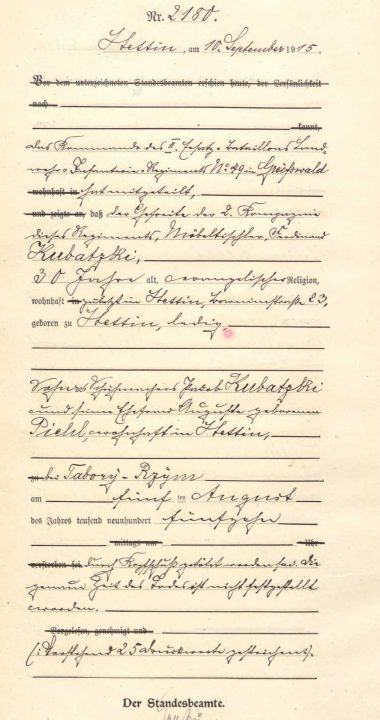 Nr. 2180.
Stettin, am 10. September 1915.
Vor dem unterzeichneten Standesbeamten erschien heute, der Persönlichkeit
nach
kannt,
Das Kommando des II. Ersatz-Bataillons Land-
wehr-Infanterie-Regiments No 49 in Greifswald
wohnhaft in hat mitgeteilt,
und zeigte an, daß der Gefreite der 2. Kompagnie
dieses Regiments, Möbeltischler, Ferdinand
Kubatzki,
30 Jahre alt, evangelischer Religion,
wohnhaft in zuletzt in Stettin, 23,
geboren zu Stettin, ledig,
Sohn des Jacob Kubatzki
und seiner Ehefrau Auguste geborenen
Piehl, wohnhaft in Stettin,
zu bei Tabory-Rzym
am fünf ten August
des Jahres tausend neunhundert fünfzehn
mittags um Uhr
verstorben sei durch Kopfschuß getötet worden sei. Die
genaue Zeit des Todes ist nicht festgestellt
worden.
Vorgelesen, genehmigt und
(: Vorstehend 25 Druckworte gestrichen:).
Der Standesbeamte.